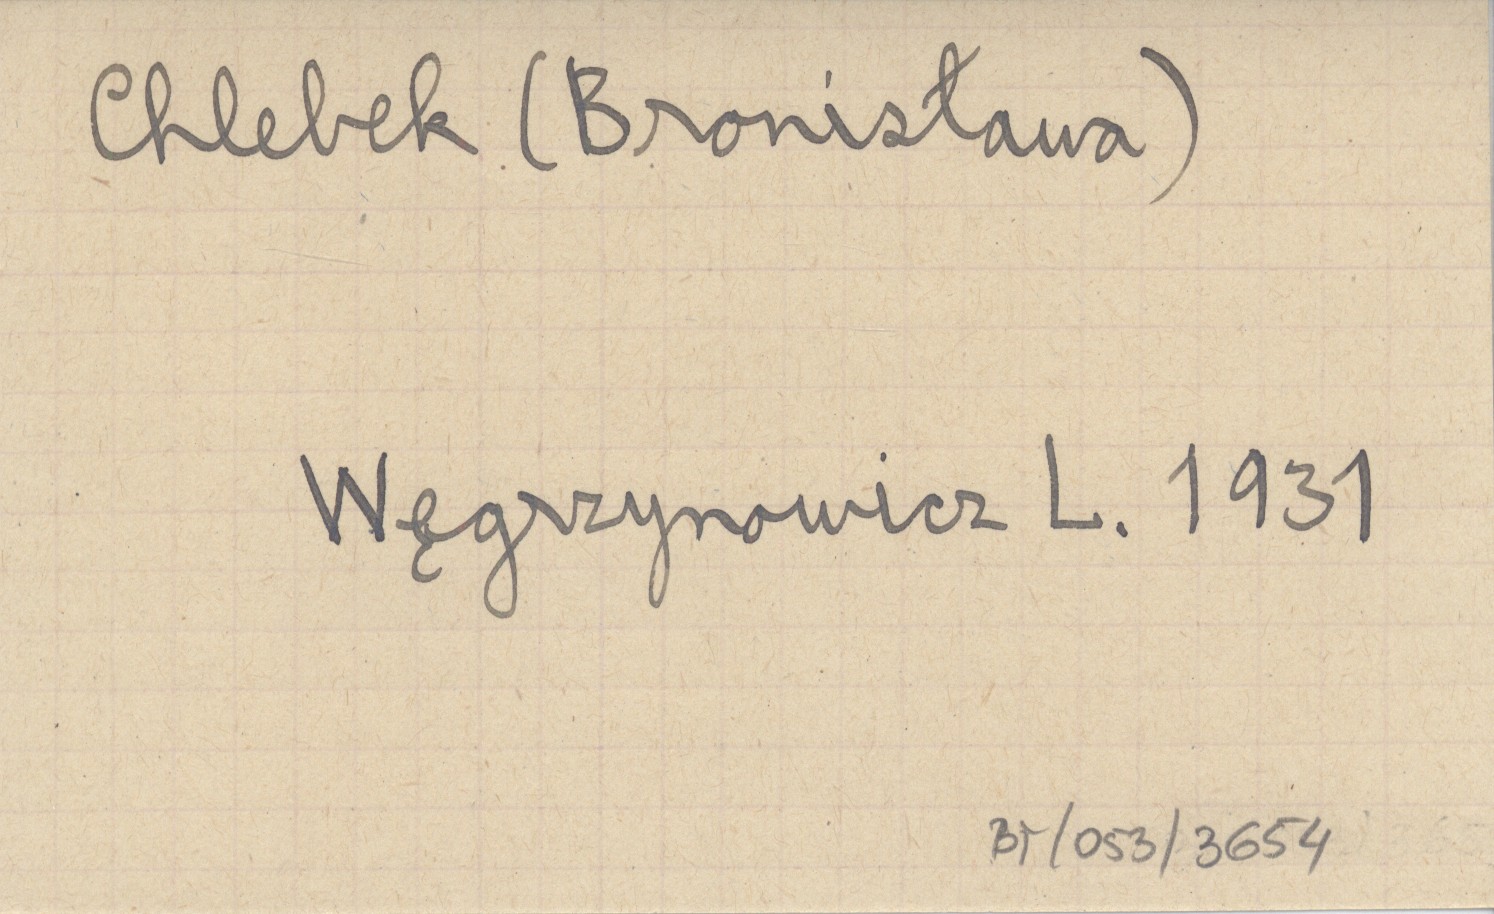 Chlebek (Bronisława)
Węgrzynowicz L. 1931
BT/053/3654